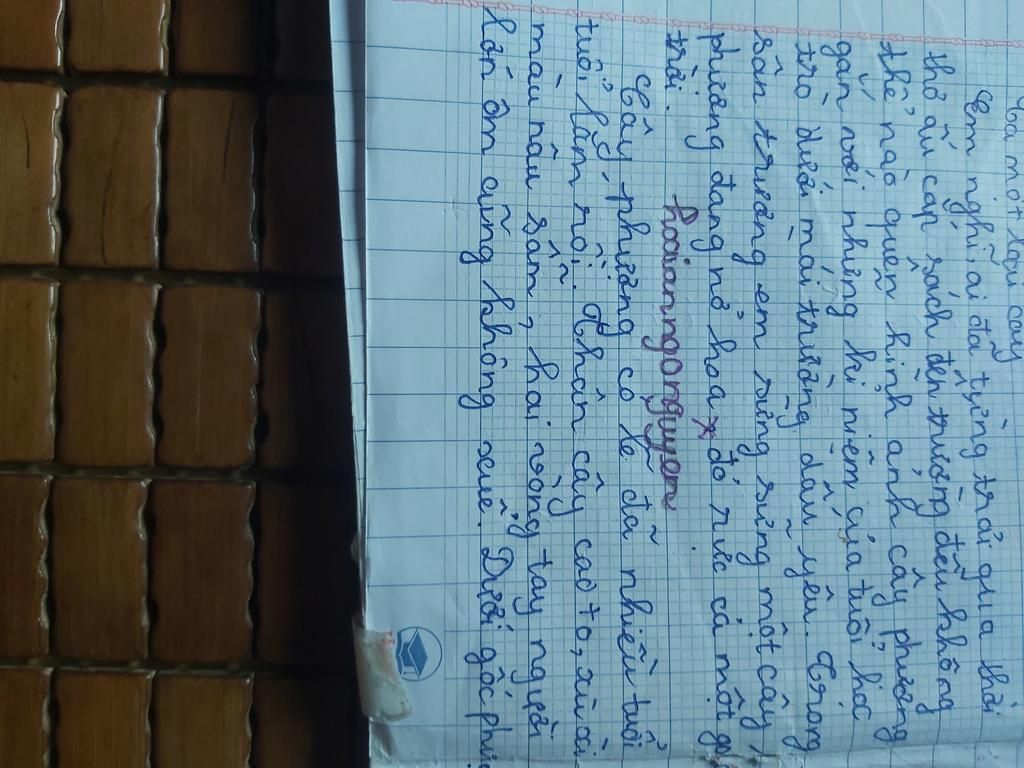 tả một loài cây
Em nghĩ ai đã từng trải qua thời
thơ ấu cắp sách đến trường đều không
thể nào quên hình ảnh cây phượng
gắn với những kỉ niệm của tuổi học
trò dưới mái trường dấu yêu. Trong
sân trường em sừng sững một cây
phượng đang nở hoa đỏ rực cả một
trời.
hoaianngongnguyen
Cây phượng có lẽ đã nhiều tuổi
tuổi lắm rồi. Thân cây cao to, xù xì
màu nâu sẫm, hai vòng tay người
lớn ôm cũng không xuể. Dưới gốc